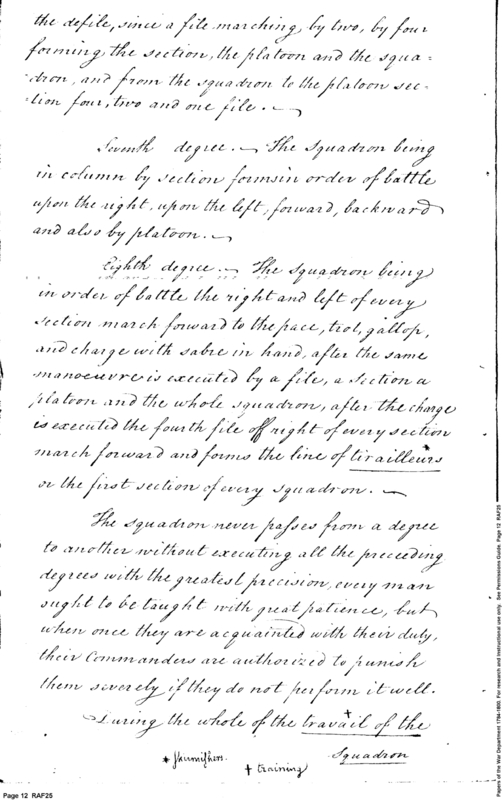 the defile, since a file marching, by two, by four
forming the section, the platoon and the squa=
dron, and from the squadron to the platoon sec=
tion four, two and one file.
Seventh degree. The Squadron being
in column by section forms in order of battle
upon the right, upon the left, forward, backward
and also by platoon.
Eighth degree. The Squadron being
in order of battle the right and left of every
section march forward to the pace, trot, gallop,
and charge with sabre in hand, after the same
manoeuvre is executed by a file, a Section a
platoon and the whole squadron, after the charge
is executed the fourth file off right of every section
march forward and forms the line of tirailleurs
or the first section of every squadron.
The squadron never passes from a degree
to another without executing all the preceeding
degrees with the greatest precision, every man
ought to be taught with great patience, but
when once they are acquainted with their duty,
their Commanders are authorized to punish
them severely if they do not perform it well.
During the whole of the travail + of the
Squadron
* skirmishers.
+ training
Page 12 RAF25
Papers of the War Department 1784-1800. For research and instructional use only. See Permissions Guide. Page 12 RAF25